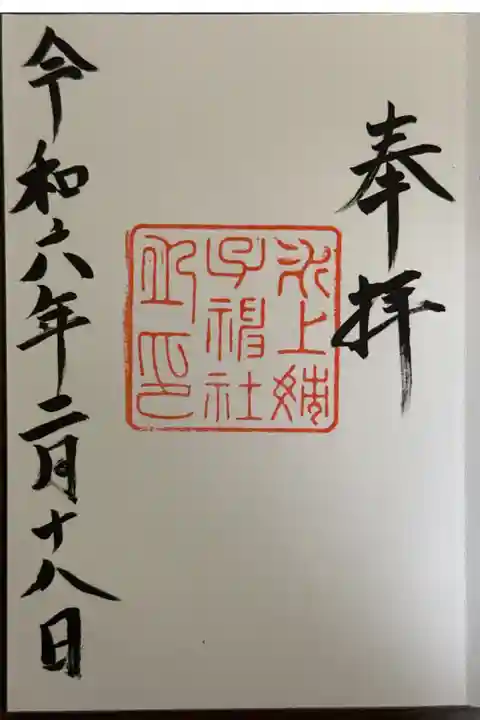 奉拝
氷上姉
子神社
之印
令和六年二月十八日